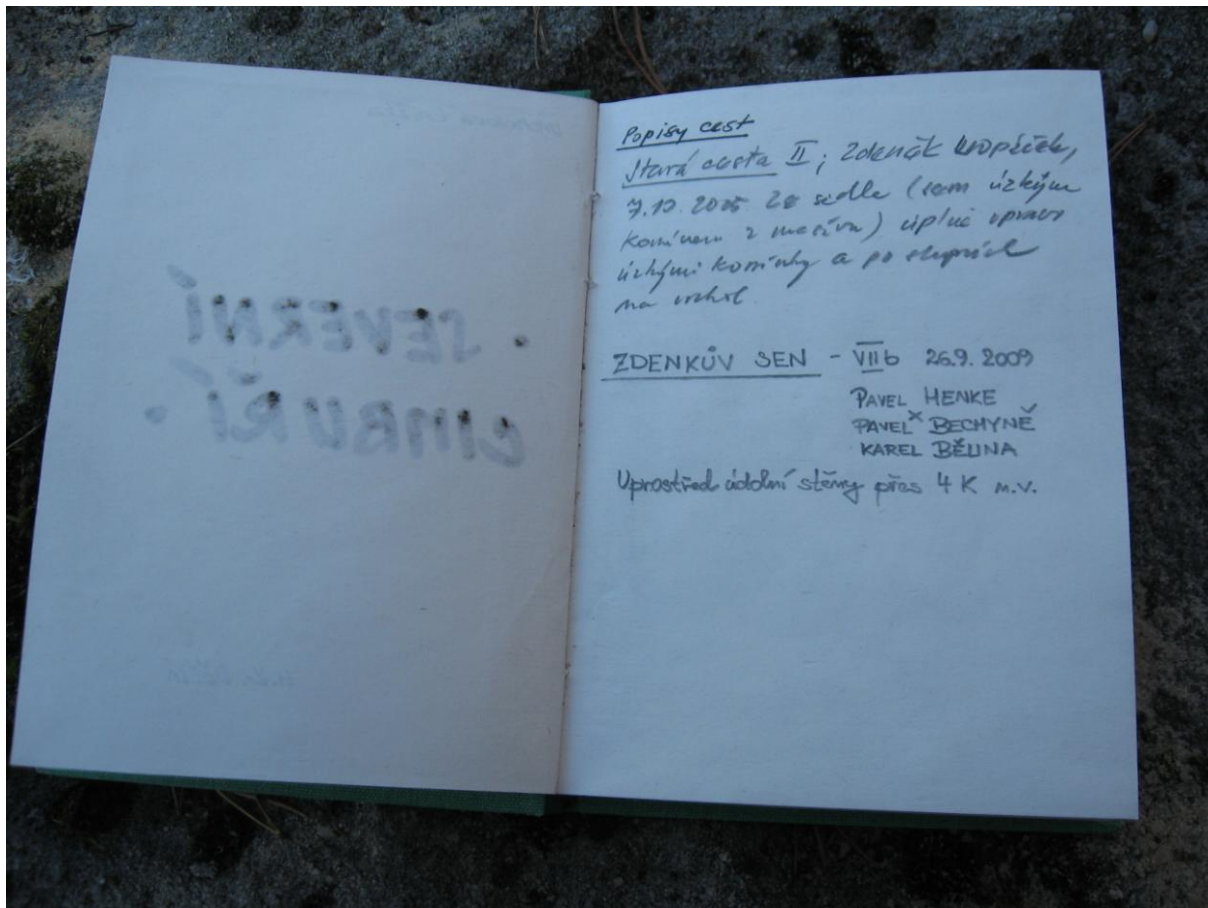 SEVERNÍ
CIMBUŘÍ
Popisy cest
Stará cesta II; Zdeněk Kropáček,
7.10.2005 Ze sedla (sem úzkým
komínem z masívu) úplně vpravo
úzkými komínky a po stupních
na vrchol.
ZDENKŮV SEN - VIIb 26.9.2009
PAVEL HENKE
PAVEL X BECHYNĚ
KAREL BĚLINA
Uprostřed údolní stěny přes 4 K n.v.